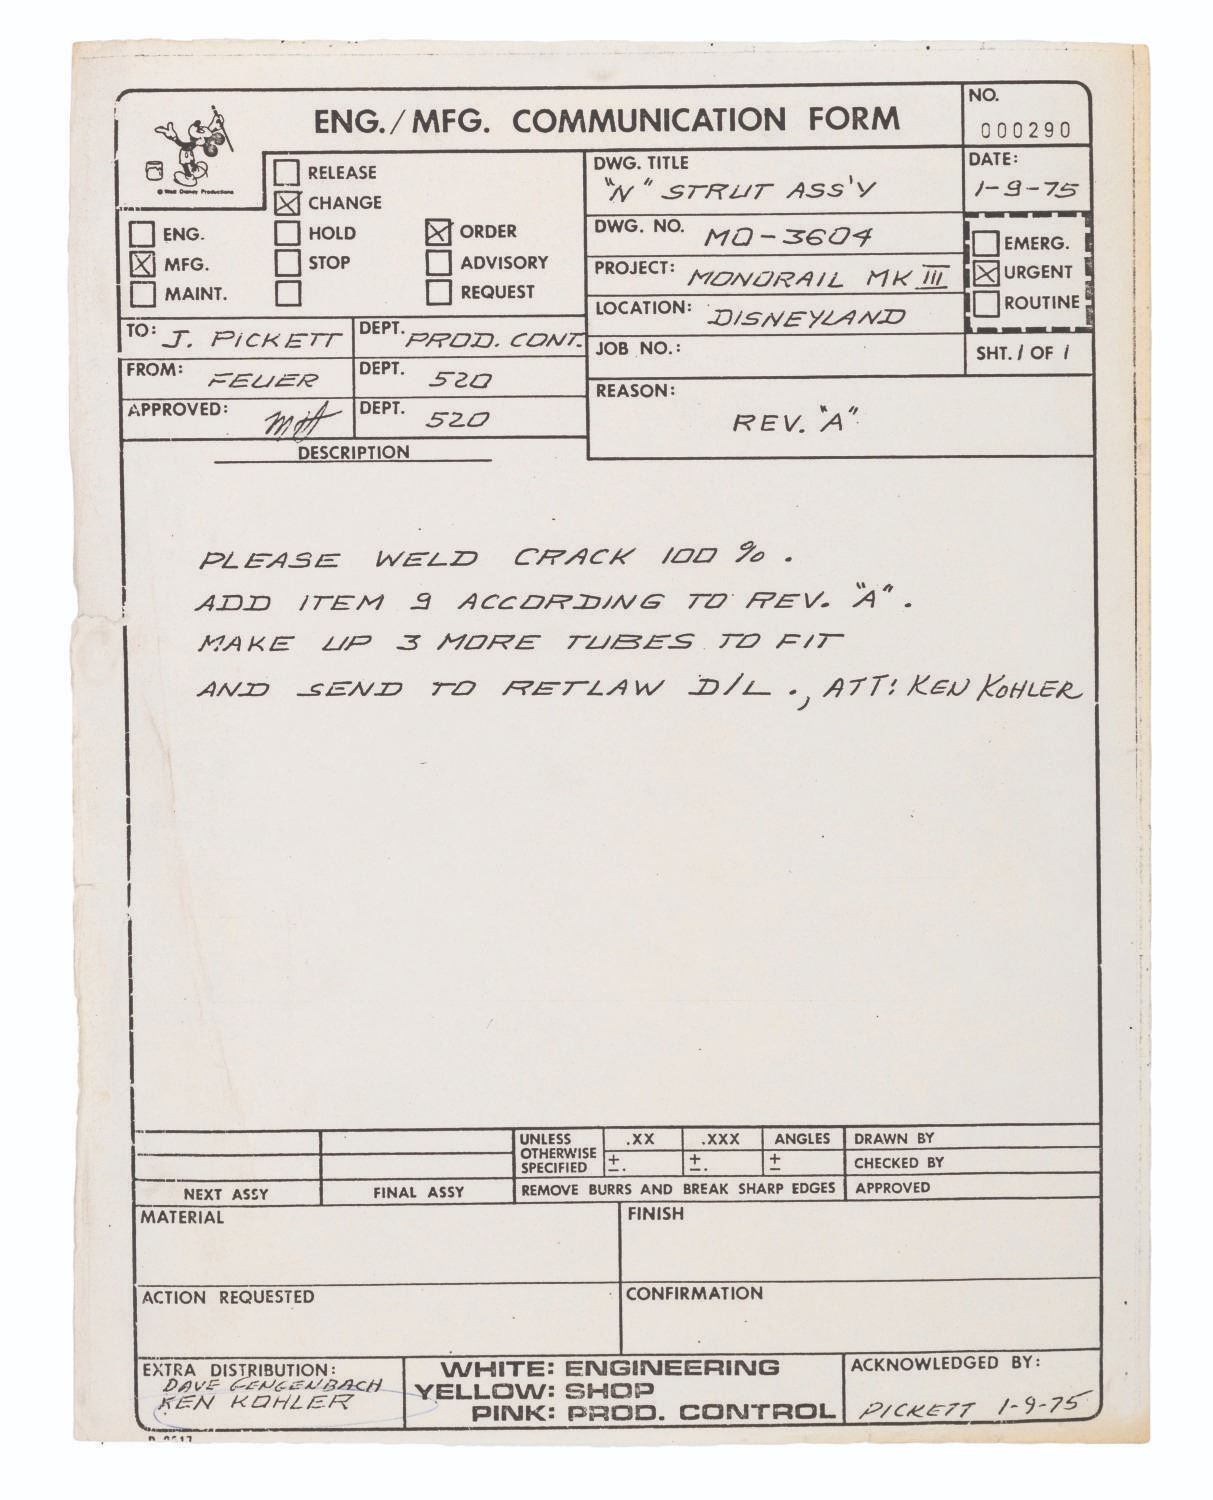 ENG./MFG. COMMUNICATION FORM
NO.
000290
© Walt Disney Productions
RELEASE
CHANGE
HOLD
STOP
ENG.
MFG.
MAINT.
ORDER
ADVISORY
REQUEST
DWG. TITLE
"N" STRUT ASS'Y
DATE:
1-9-75
DWG. NO. MO-3604
PROJECT: MONORAIL MK III
LOCATION: DISNEYLAND
EMERG.
URGENT
ROUTINE
TO: J. PICKETT DEPT. PROD. CONT.
JOB NO.:
SHT. 1 OF 1
FROM: FEUER DEPT. 520
REASON:
REV. "A"
APPROVED: DEPT. 520
DESCRIPTION
PLEASE WELD CRACK 100 %.
ADD ITEM 9 ACCORDING TO REV. "A".
MAKE UP 3 MORE TUBES TO FIT
AND SEND TO RETLAW D/L., ATT: KEN KOHLER
UNLESS OTHERWISE SPECIFIED
.XX .XXX ANGLES
±. ±. ±
DRAWN BY
CHECKED BY
NEXT ASSY FINAL ASSY REMOVE BURRS AND BREAK SHARP EDGES APPROVED
MATERIAL FINISH
ACTION REQUESTED CONFIRMATION
EXTRA DISTRIBUTION:
DAVE GENGENBACH
KEN KOHLER
WHITE: ENGINEERING
YELLOW: SHOP
PINK: PROD. CONTROL
ACKNOWLEDGED BY:
PICKETT 1-9-75